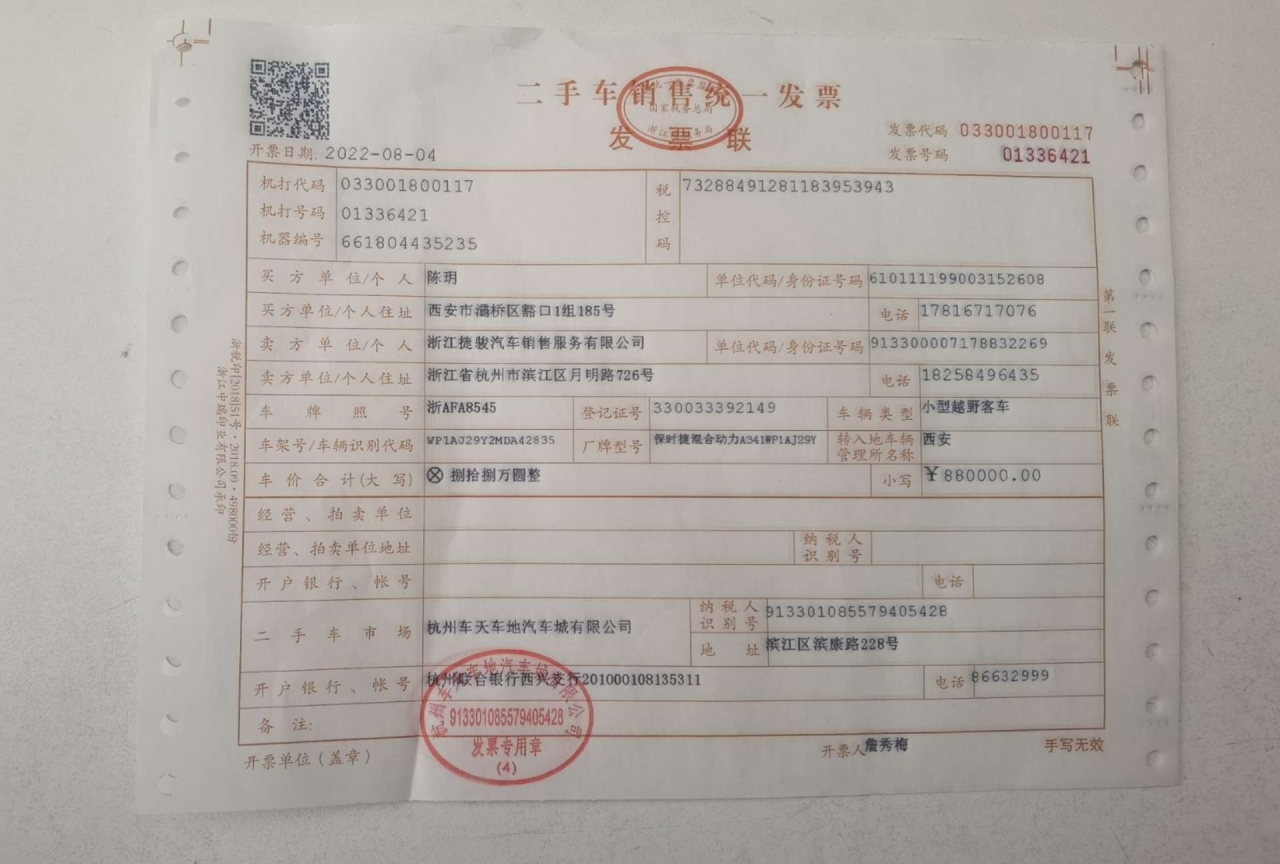 二手车销售统一发票
国家税务总局
发票联
发票代码 033001800117
发票号码 01336421
开票日期: 2022-08-04
机打代码 033001800117
机打号码 01336421
机器编号 661804435235
税控码 73288491281183953943
买方单位/个人 陈玥 单位代码/身份证号码 610111199003152608
买方单位/个人住址 西安市灞桥区豁口1组185号 电话 17816717076
卖方单位/个人 浙江捷骏汽车销售服务有限公司 单位代码/身份证号码 913300007178832269
卖方单位/个人住址 浙江省杭州市滨江区月明路726号 电话 18258496435
车牌照号 浙AFA8545 登记证号 330033392149 车辆类型 小型越野客车
车架号/车辆识别代码 WP1AJ29Y2MDA42835 厂牌型号 保时捷混合动力A341WP1AJ29Y 转入地车辆管理所名称 西安
车价合计(大写) ⊗ 捌拾捌万圆整 小写 ¥880000.00
经营、拍卖单位
经营、拍卖单位地址 纳税人识别号
开户银行、帐号 电话
二手车市场 杭州车天车地汽车城有限公司 纳税人识别号 913301085579405428
地址 滨江区滨康路228号
开户银行、帐号 杭州联合银行西兴支行201000108135311 电话 86632999
备注:
开票单位(盖章) 开票人 詹秀梅 手写无效
杭州车天车地汽车城有限公司
913301085579405428
发票专用章
(4)
第一联 发票联
浙税印[2018]51号·2018.09·498000份
浙江中瑞印业有限公司承印